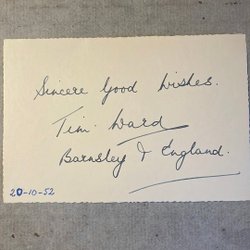 Sincere Good Wishes.
Tim. Ward
Barnsley & England.
20-10-52